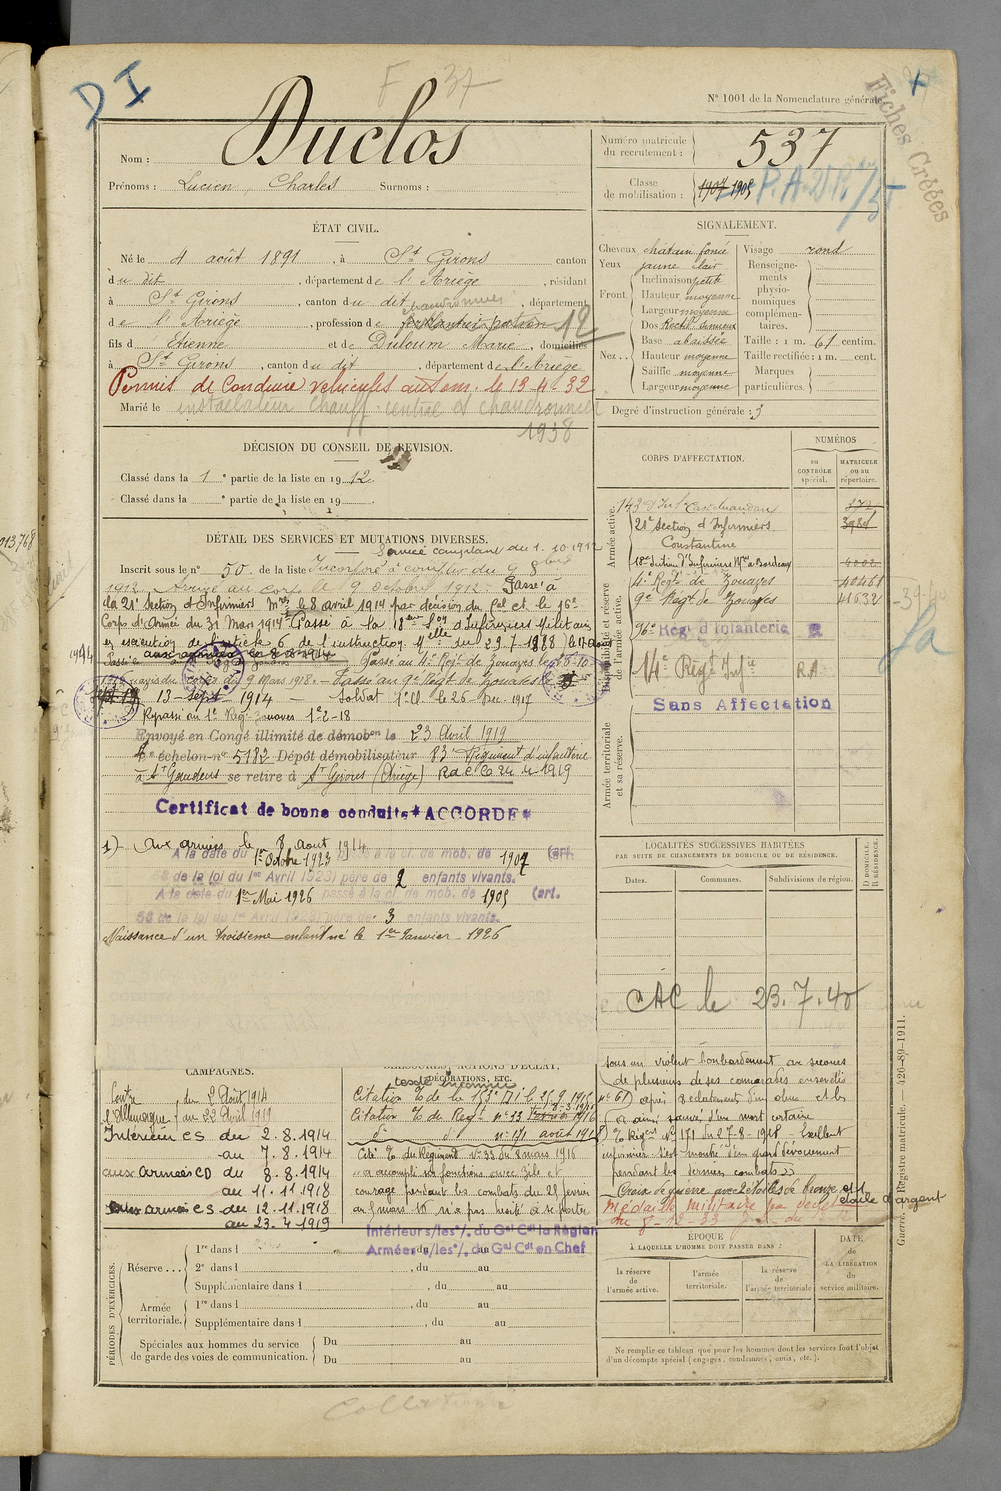 D I
F 37
Nº 1001 de la Nomenclature générale
Fiches Créées
Nom : Duclos
Prénoms : Lucien, Charles Surnoms :
Numéro matricule du recrutement : 537
Classe de mobilisation : 1907 1905
ÉTAT CIVIL.
Né le 4 août 1891, à St Girons canton
du dit, département de l'Ariège, résidant
à St Girons, canton du dit, département
chaudronnier
de l'Ariège, profession de ferblantier patron 12
fils d'Etienne et de Duloum Marie, domiciliés
à St Girons, canton du dit, département de l'Ariège
Permis de Conduire vehicules autom. le 13.4.32
Marié le installateur chauff. central et chaudronnier
1938
SIGNALEMENT.
Cheveux chatain foncé
Yeux jaune clair
Front Inclinaison petite
Hauteur moyenne
Largeur moyenne
Nez Dos Rect. sinueux
Base abaissée
Hauteur moyenne
Saillie moyenne
Largeur moyenne
Visage rond
Renseignements physionomiques complémentaires.
Taille : 1 m. 61 centim.
Taille rectifiée : 1 m. cent.
Marques particulières.
Degré d'instruction générale : 3
DÉCISION DU CONSEIL DE REVISION.
Classé dans la 1e partie de la liste en 1912
Classé dans la e partie de la liste en 19
CORPS D'AFFECTATION.
NUMÉROS
au CONTRÔLE spécial.
MATRICULE ou au répertoire.
Armée active.
143e d'Infie Castelnaudary 872
21e Section d'Infirmiers 3981
Constantine
18e Section d'Infirmiers Mres à Bordeaux 4002
Disponibilité et réserve de l'armée active.
4e Regt de Zouaves 40461
9e Regt de Zouaves 41632
96e Régt d'Infanterie R
14e Régt Infie R.A.
Sans Affectation
Armée territoriale et sa réserve.
DÉTAIL DES SERVICES ET MUTATIONS DIVERSES.
Service comptant du 1.10.1912
Inscrit sous le nº 50 de la liste Incorporé à compter du 9 8bre
1912. Arrivé au corps le 9 octobre 1912. Passé à
la 21e Section d'Infirmiers Mres le 8 avril 1914 par décision du Gal Ct le 16e
Corps d'Armée du 31 Mars 1914. Passé à la 18eme Son d'Infirmiers Militaires
en exécution de l'article 6 de l'instruction Melle du 29.7.1888 le 17 Août
1914
aux armées le 8-8-1914
Passé au 4e Régt de Zouaves le
du 9 Mars 1918. Passé au 9e Régt de Zouaves
13 - Sept - 1914 - Soldat 1e Cl. le 26 Dec. 1917
Repassé au 1e Reg. Zouaves 1e 2-18
Envoyé en Congé illimité de démobon le 23 Avril 1919
échelon nº 5182 Dépôt démobilisateur 83e Régiment d'infanterie
à St Gaudens se retire à St Girons (Ariège) R d C Co 24 4 1919
Certificat de bonne conduite*ACCORDE*
1) Aux armées le 8 Aout 1914
A la date du 1er Octobre 1923 passé à la cl. de mob. de 1907 (art.
58 de la loi du 1er Avril 1923) père de 2 enfants vivants.
A la date du 1er Mai 1926 passé à la cl. de mob. de 1905 (art.
58 de la loi du 1er Avril 1923) père de 3 enfants vivants.
Naissance d'un troisième enfant né le 1er Janvier 1926
LOCALITÉS SUCCESSIVES HABITÉES
PAR SUITE DE CHANGEMENTS DE DOMICILE OU DE RÉSIDENCE.
Dates.
Communes.
Subdivisions de région.
D DOMICILE.
R RÉSIDENCE.
CAC le 23.7.40
CAMPAGNES.
Contre l'Allemagne du 2 Août 1914
au 22 Avril 1919
Intérieur CS du 2.8.1914
au 7.8.1914
aux Armées CD du 8.8.1914
au 11.11.1918
aux armées CS du 12.11.1918
au 23.4.1919
BLESSURES, ACTIONS D'ÉCLAT,
DÉCORATIONS, ETC.
Citation à l'O. de la 153e DI le 25.9.1915
Citation à l'O. du Regt nº 33 8-3-1916
dº dº nº 171 août 1918
Cité O. du Régiment Nº 33 du 8 mars 1916
«a accompli ses fonctions avec zèle et
courage pendant les combats du 25 fevrier
au 5 mars 16 n'a pas hésité à se porter
sous un violent bombardement au secours
de plusieurs de ses camarades ensevelis
après éclatement d'un obus et les
a ainsi sauvé d'une mort certaine
O. Régt Nº 171 du 27-8-1918 - Excellent
infirmier s'est montré d'un grand dévouement
pendant les derniers combats»
Croix de guerre avec 2 étoiles de bronze et 1 étoile d'argent
Médaille militaire par décret
du 8-12-33
Intérieur s/les o/. du Gal Cdt la Région
Armées s/les o/. du Gal Cdt en Chef
PÉRIODES D'EXERCICES.
Réserve... 1re dans l , du au
2e dans l , du au
Supplémentaire dans l , du au
Armée territoriale. 1re dans l , du au
Supplémentaire dans l , du au
Spéciales aux hommes du service de garde des voies de communication. Du au
Du au
ÉPOQUE
À LAQUELLE L'HOMME DOIT PASSER DANS :
la réserve de l'armée active.
l'armée territoriale.
la réserve de l'armée territoriale
DATE de LA LIBÉRATION du service militaire.
Ne remplir ce tableau que pour les hommes dont les services font l'objet
d'un décompte spécial (engagés, condamnés, omis, etc.).
Guerre. — Registre matricule. — 426-89-1911.